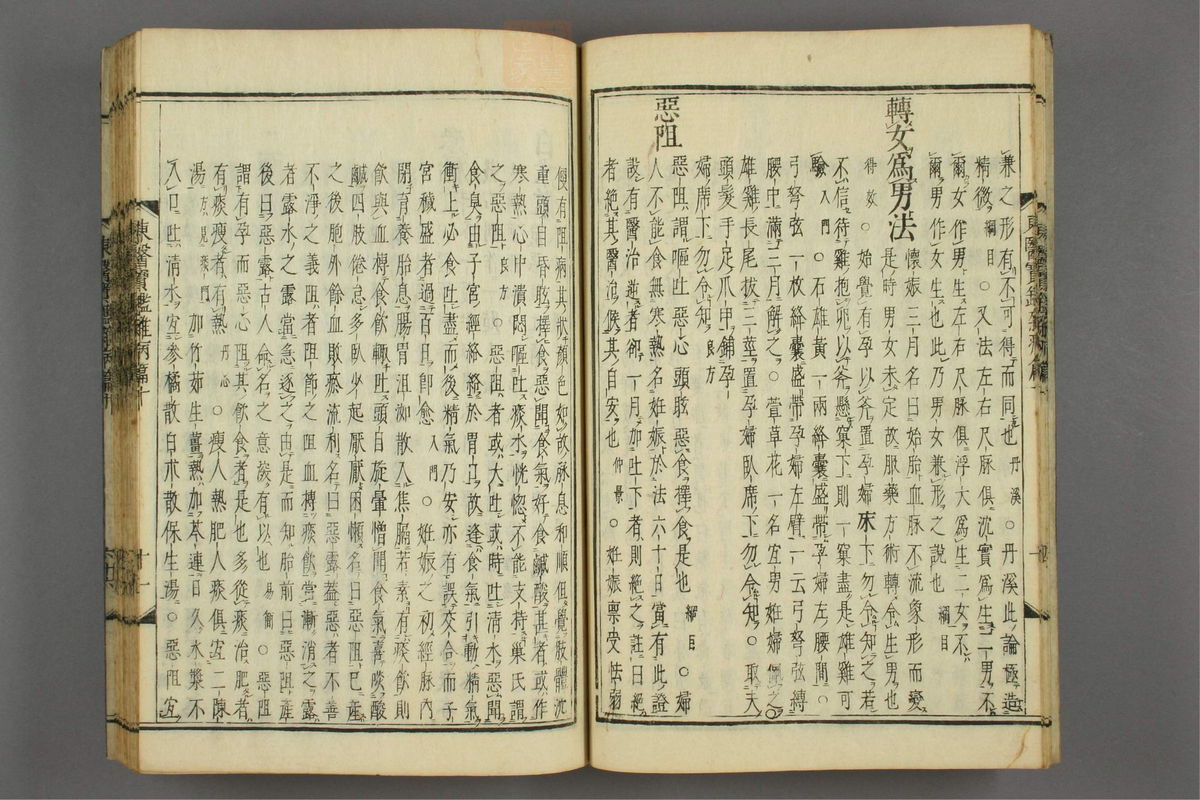 兼之形有不可得而同也丹溪○丹溪此論極造
精微綱目○又法左右尺脉俱沈實爲生二男不
爾女作男生左右尺脉俱浮大爲生二女不
爾男作女生也此乃男女兼形之說也綱目
轉女爲男法
懷娠三月名曰始胎血脉不流象形而變
是時男女未定故服藥方術轉令生男也
得效○始覺有孕以斧置孕婦床下勿令知之若
不信待雞抱卵以斧懸窠下則一窠盡是雄雞可
驗入門○石雄黃一兩絳囊盛帶孕婦左腰間○
弓弩弦一枚絳囊盛帶孕婦左臂一云弓弩弦縛
腰中滿三月解之○萱草花一名宜男姙婦佩之○
雄雞長尾拔三莖置孕婦臥席下勿令知○取夫
頭髮手足爪甲鋪孕
婦席下勿令知良方
惡阻
惡阻謂嘔吐惡心頭眩惡食擇食是也綱目○婦
人不能食無寒熱名姙娠於法六十日當有此證
設有醫治逆者却一月加吐下者則絶之註曰絶
者絶其醫治候其自安也仲景○姙娠禀受怯弱
便有阻病其狀顏色如故脉息和順但覺肢體沈
重頭目昏眩擇食惡聞食氣好食鹹酸甚者或作
寒熱心中憒悶嘔吐痰水恍惚不能支持巢氏謂
之惡阻良方○惡阻者或大吐或時吐清水惡聞
食臭由子宮經絡絡於胃口故逢食氣引動精氣
衝上必食吐盡而後精氣乃安亦有誤交合而子
宮穢盛者過百日卽愈入門○姙娠之初經脉內
閉育養胎息腸胃沮洳散入焦膈若素有痰飮則
飮與血搏食飮輒吐頭目旋暈憎聞食氣喜啖酸
鹹四肢倦怠多臥少起厭厭困懶名曰惡阻已產
之後胞外餘血敗瘀流利名曰惡露蓋惡者不善
不淨之義阻者阻節之阻血搏痰飮當漸消之露
者露水之露當急逐之由是而知胎前曰惡阻產
後曰惡露古人命名之意故有以也易簡○惡阻
謂有孕而惡心阻其飮食者是也多從痰治肥者
有痰瘦者有熱丹心○瘦人熱肥人痰俱宜二陳
湯方見痰門加竹茹生薑熱加芩連日久水漿不
入口吐清水宜參橘散白朮散保生湯○惡阻宜
東醫寶鑑雜病篇十
十一